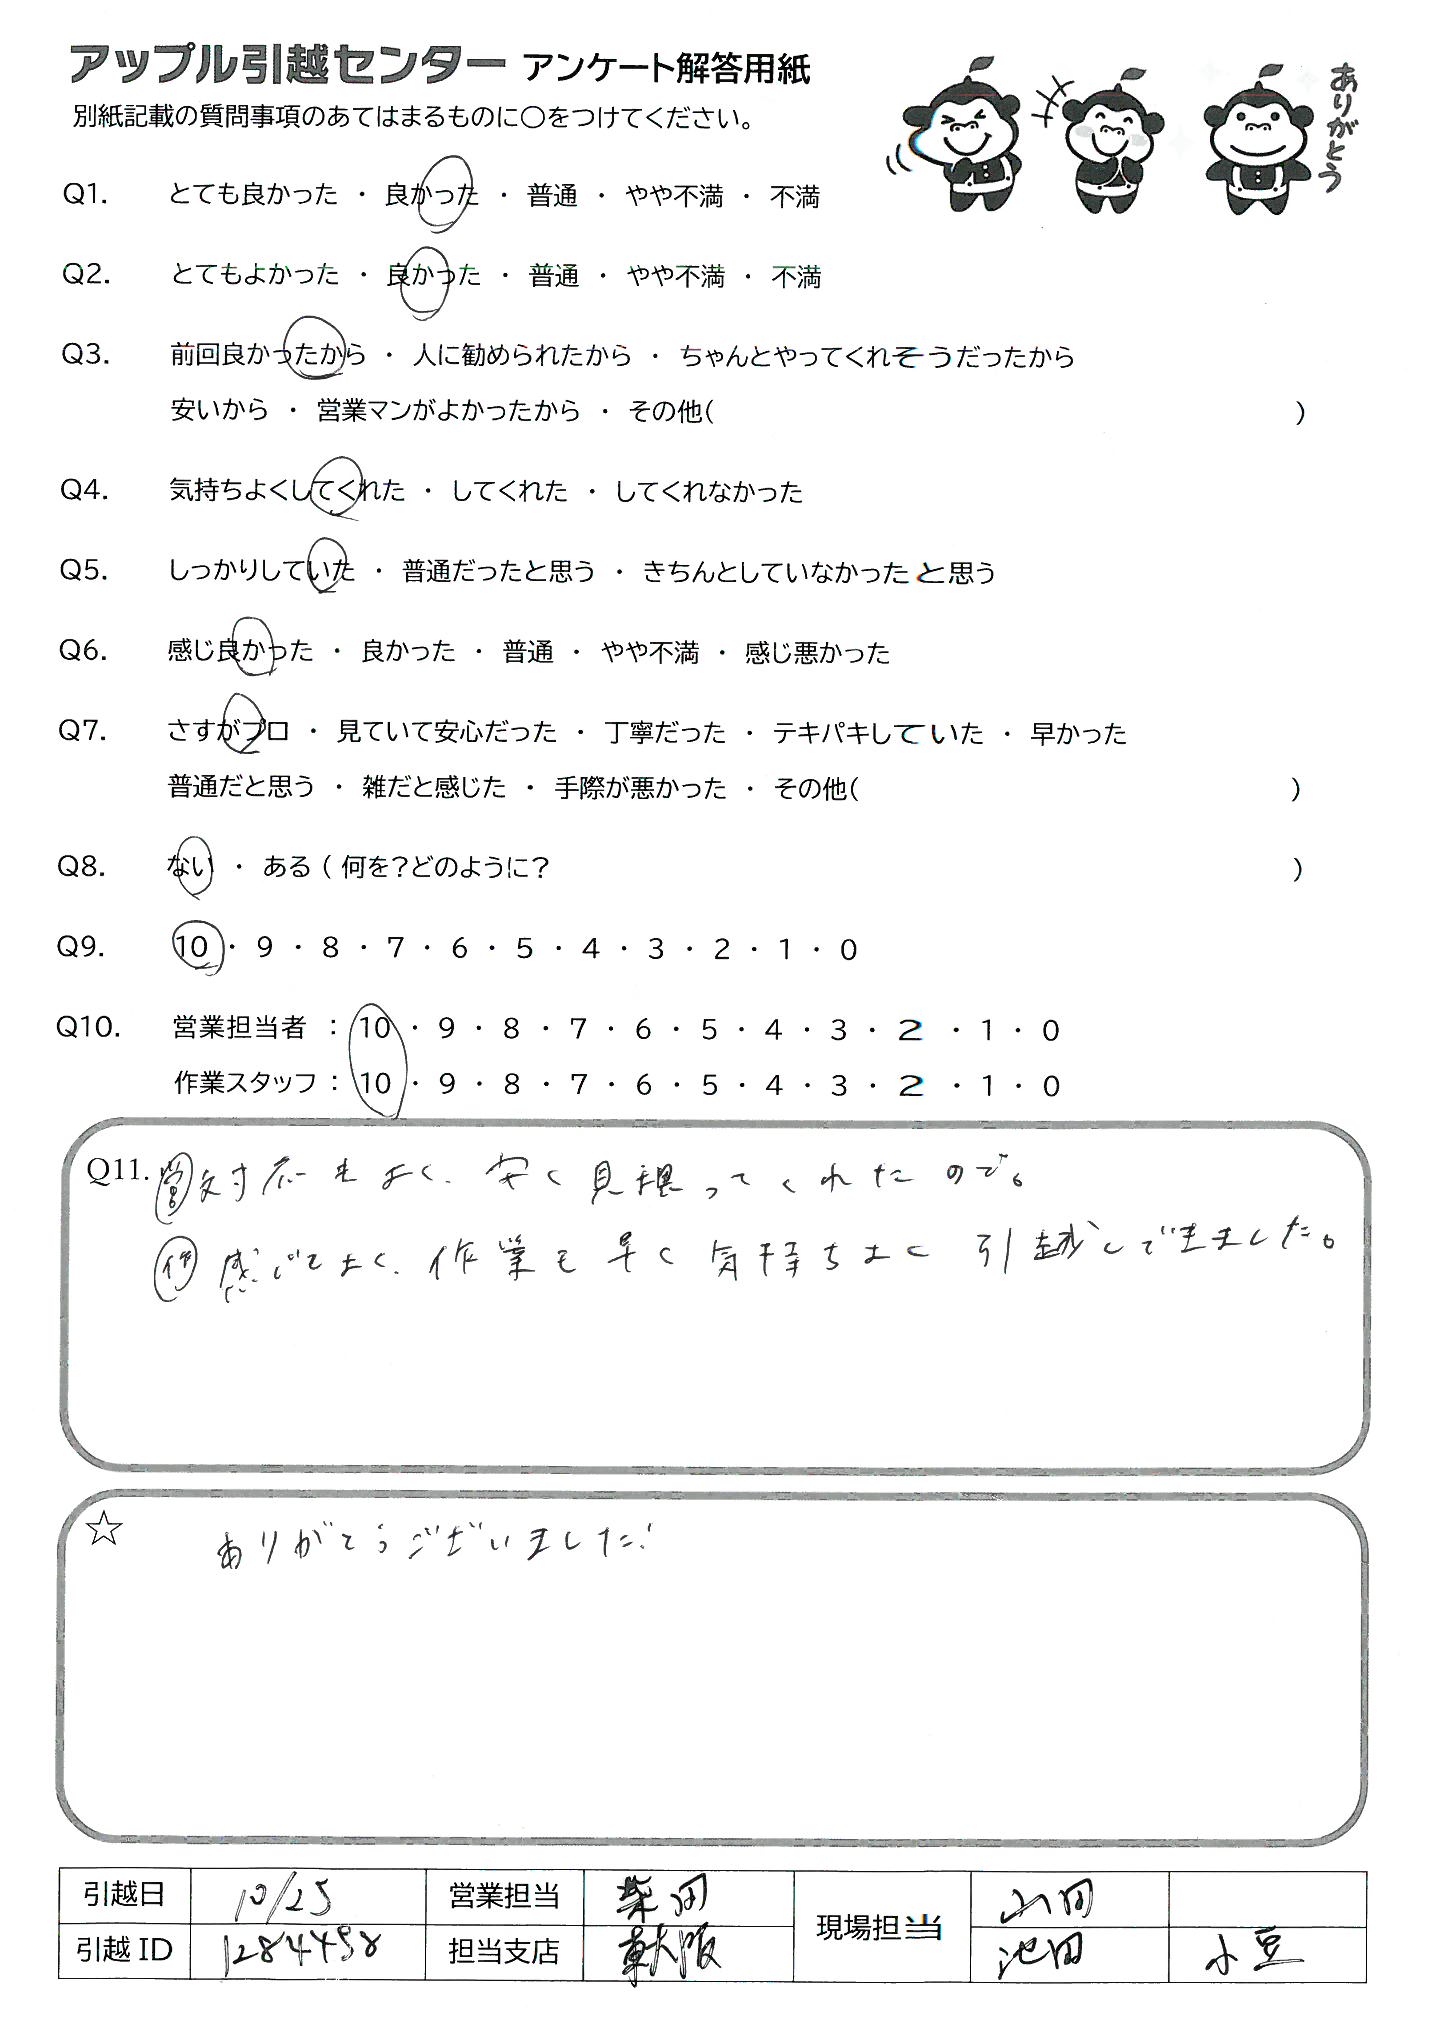 アップル引越センター アンケート解答用紙
別紙記載の質問事項のあてはまるものに〇をつけてください。
ありがとう
Q1. とても良かった ・ 良かった ・ 普通 ・ やや不満 ・ 不満
Q2. とてもよかった ・ 良かった ・ 普通 ・ やや不満 ・ 不満
Q3. 前回良かったから ・ 人に勧められたから ・ ちゃんとやってくれそうだったから
安いから ・ 営業マンがよかったから ・ その他( )
Q4. 気持ちよくしてくれた ・ してくれた ・ してくれなかった
Q5. しっかりしていた ・ 普通だったと思う ・ きちんとしていなかったと思う
Q6. 感じ良かった ・ 良かった ・ 普通 ・ やや不満 ・ 感じ悪かった
Q7. さすがプロ ・ 見ていて安心だった ・ 丁寧だった ・ テキパキしていた ・ 早かった
普通だと思う ・ 雑だと感じた ・ 手際が悪かった ・ その他( )
Q8. ない ・ ある ( 何を？どのように？ )
Q9. 10 ・ 9 ・ 8 ・ 7 ・ 6 ・ 5 ・ 4 ・ 3 ・ 2 ・ 1 ・ 0
Q10. 営業担当者 ： 10 ・ 9 ・ 8 ・ 7 ・ 6 ・ 5 ・ 4 ・ 3 ・ 2 ・ 1 ・ 0
作業スタッフ ： 10 ・ 9 ・ 8 ・ 7 ・ 6 ・ 5 ・ 4 ・ 3 ・ 2 ・ 1 ・ 0
Q11. 営 対応もよく、安く見積ってくれたので。
作 感じもよく、作業も早く気持ちよく引越しできました。
☆ ありがとうございました!
引越日 10/25 営業担当 柴田 現場担当 山田
引越ID 1284498 担当支店 東大阪 池田 小豆